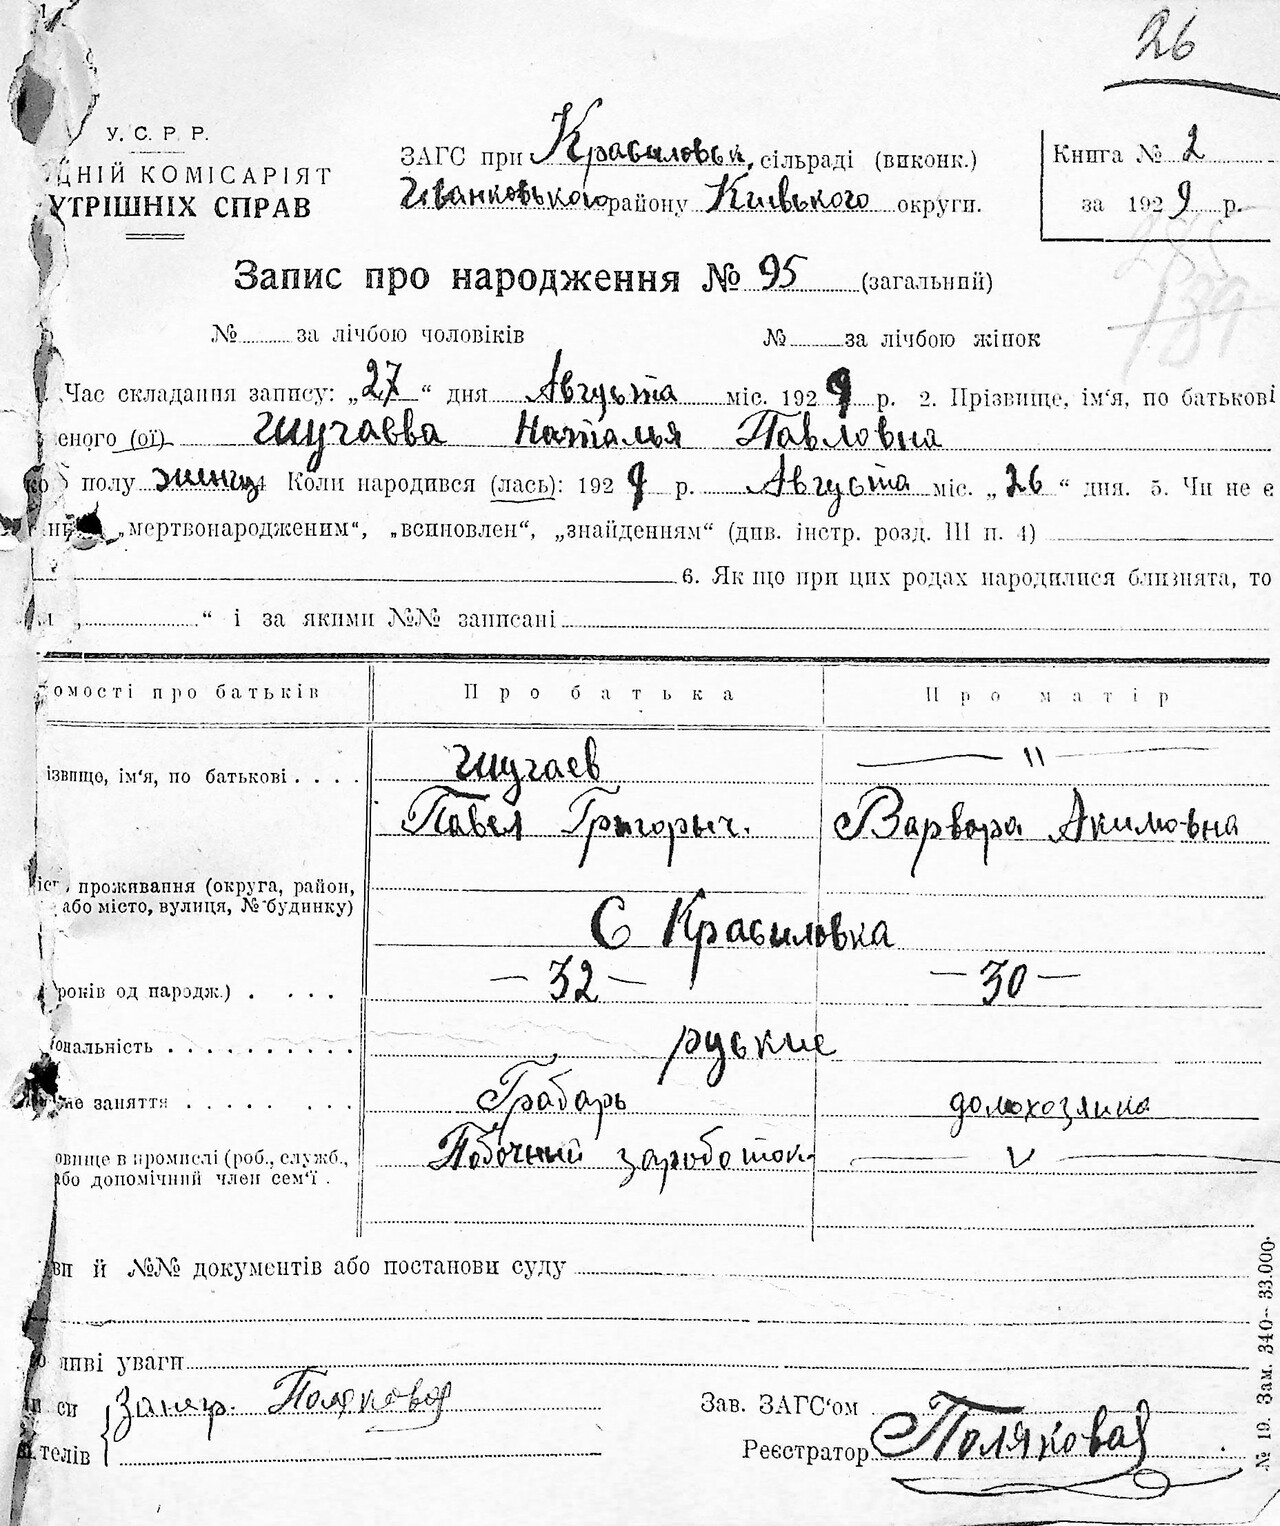 26
У. С. Р. Р.
ДНІЙ КОМІСАРІЯТ
УТРІШНІХ СПРАВ
ЗАГС при Красиловськ. сільраді (виконк.)
Іванковського району Київського округи.
Книга № 2
за 1929 р.
Запис про народження № 95 (загальний)
№ за лічбою чоловіків № за лічбою жінок
Час складання запису: „27“ дня Августа міс. 1929 р. 2. Прізвище, ім'я, по батькові
еного (ої) Шучаєва Наталья Павловна
полу Коли народився (лась): 1929 р. Августа міс. „26“ дня. 5. Чи не є
„мертвонародженим“, „всиновлен“, „знайденням“ (див. інстр. розд. III п. 4)
6. Як що при цих родах народилися близнята, то
“ і за якими №№ записані
омості про батьків Про батька Про матір
Шучаев — " —
ізвище, ім'я, по батькові . . . .
Павел Григорыч. Варвара Акимовна
проживання (округа, район,
або місто, вулиця, № будинку)
С Красиловка
років од народж.) . . . . — 32 — — 30 —
ональність . . . . . . . . . . руские
не заняття . . . . . . . . Грабарь домохозяика
овище в промислі (роб., служб., Побочний зароботок — v —
або допомічний член сем'ї .
ви й №№ документів або постанови суду
ливі уваги
си Поляковой Зав. ЗАГС'ом
телів Реєстратор Полякова
№ 19. Зам. 340—33.000.